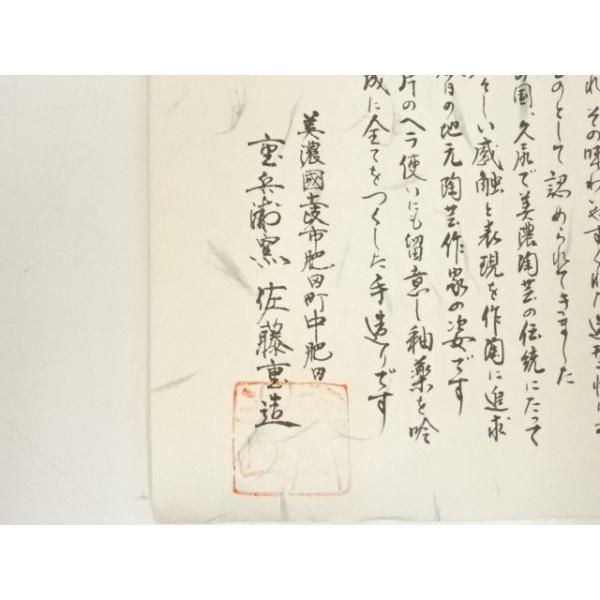 れ その味わい
ものとして認められてきました
の国、久尻で美濃陶芸の伝統にたって
しい感触と表現を作陶に追求
日の地元陶芸作家の姿です
片のヘラ使いにも留意し釉薬を吟
成に全てをつくした手造りです
美濃國土岐市肥田町中肥田
重兵衛窯 佐藤重造